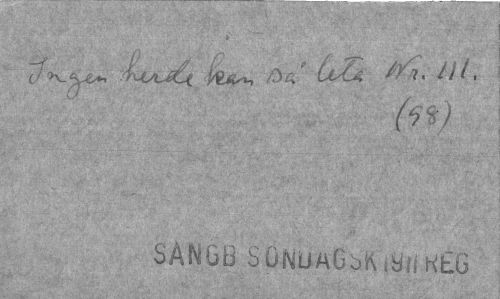 Ingen herde kan så leta Nr. III.
(98)
SANGB SONDAGSK 1911 REG